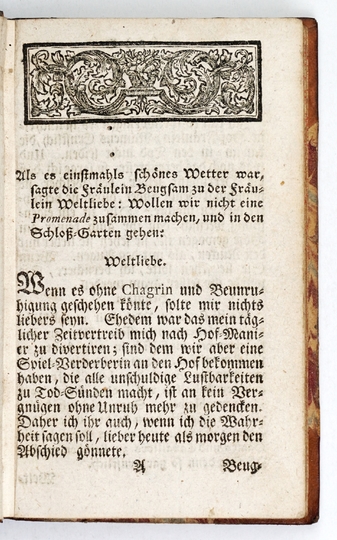 Als es einstmahls schönes Wetter war,
sagte die Fräulein Beugsam zu der Fräu-
lein Weltliebe: Wollen wir nicht eine
Promenade zusammen machen, und in den
Schloß-Garten gehen?
Weltliebe.
Wenn es ohne Chagrin und Beunru-
higung geschehen könte, solte mir nichts
liebers seyn. Ehedem war das mein täg-
licher Zeitvertreib mich nach Hof-Mani-
er zu divertiren; sind dem wir aber eine
Spiel-Verderberin an den Hof bekommen
haben, die alle unschuldige Lustbarkeiten
zu Tod-Sünden macht, ist an kein Ver-
gnügen ohne Unruh mehr zu gedencken.
Daher ich ihr auch, wenn ich die Wahr-
heit sagen soll, lieber heute als morgen den
Abschied gönnete.
A Beug-